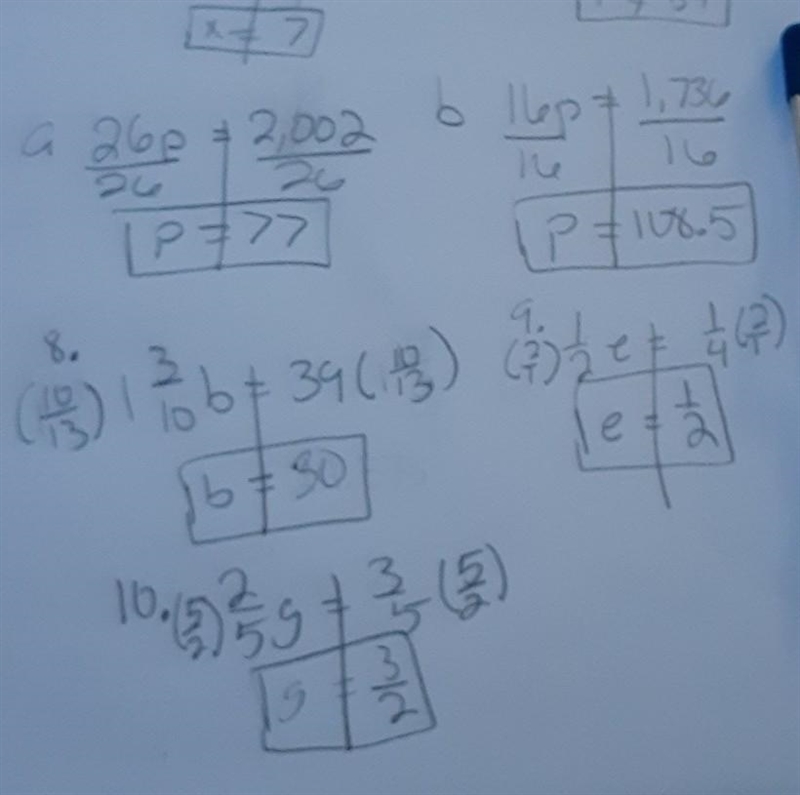 x = 7
a 26p = 2,002
26 26
p = 77
b 16p = 1,736
16 16
p = 108.5
8.
(10/13) 1 3/10 b = 39 (10/13)
b = 30
9.
(2/1) 1/2 e = 1/4 (2/1)
e = 1/2
10. (5/2) 2/5 g = 3/5 (5/2)
g = 3/2